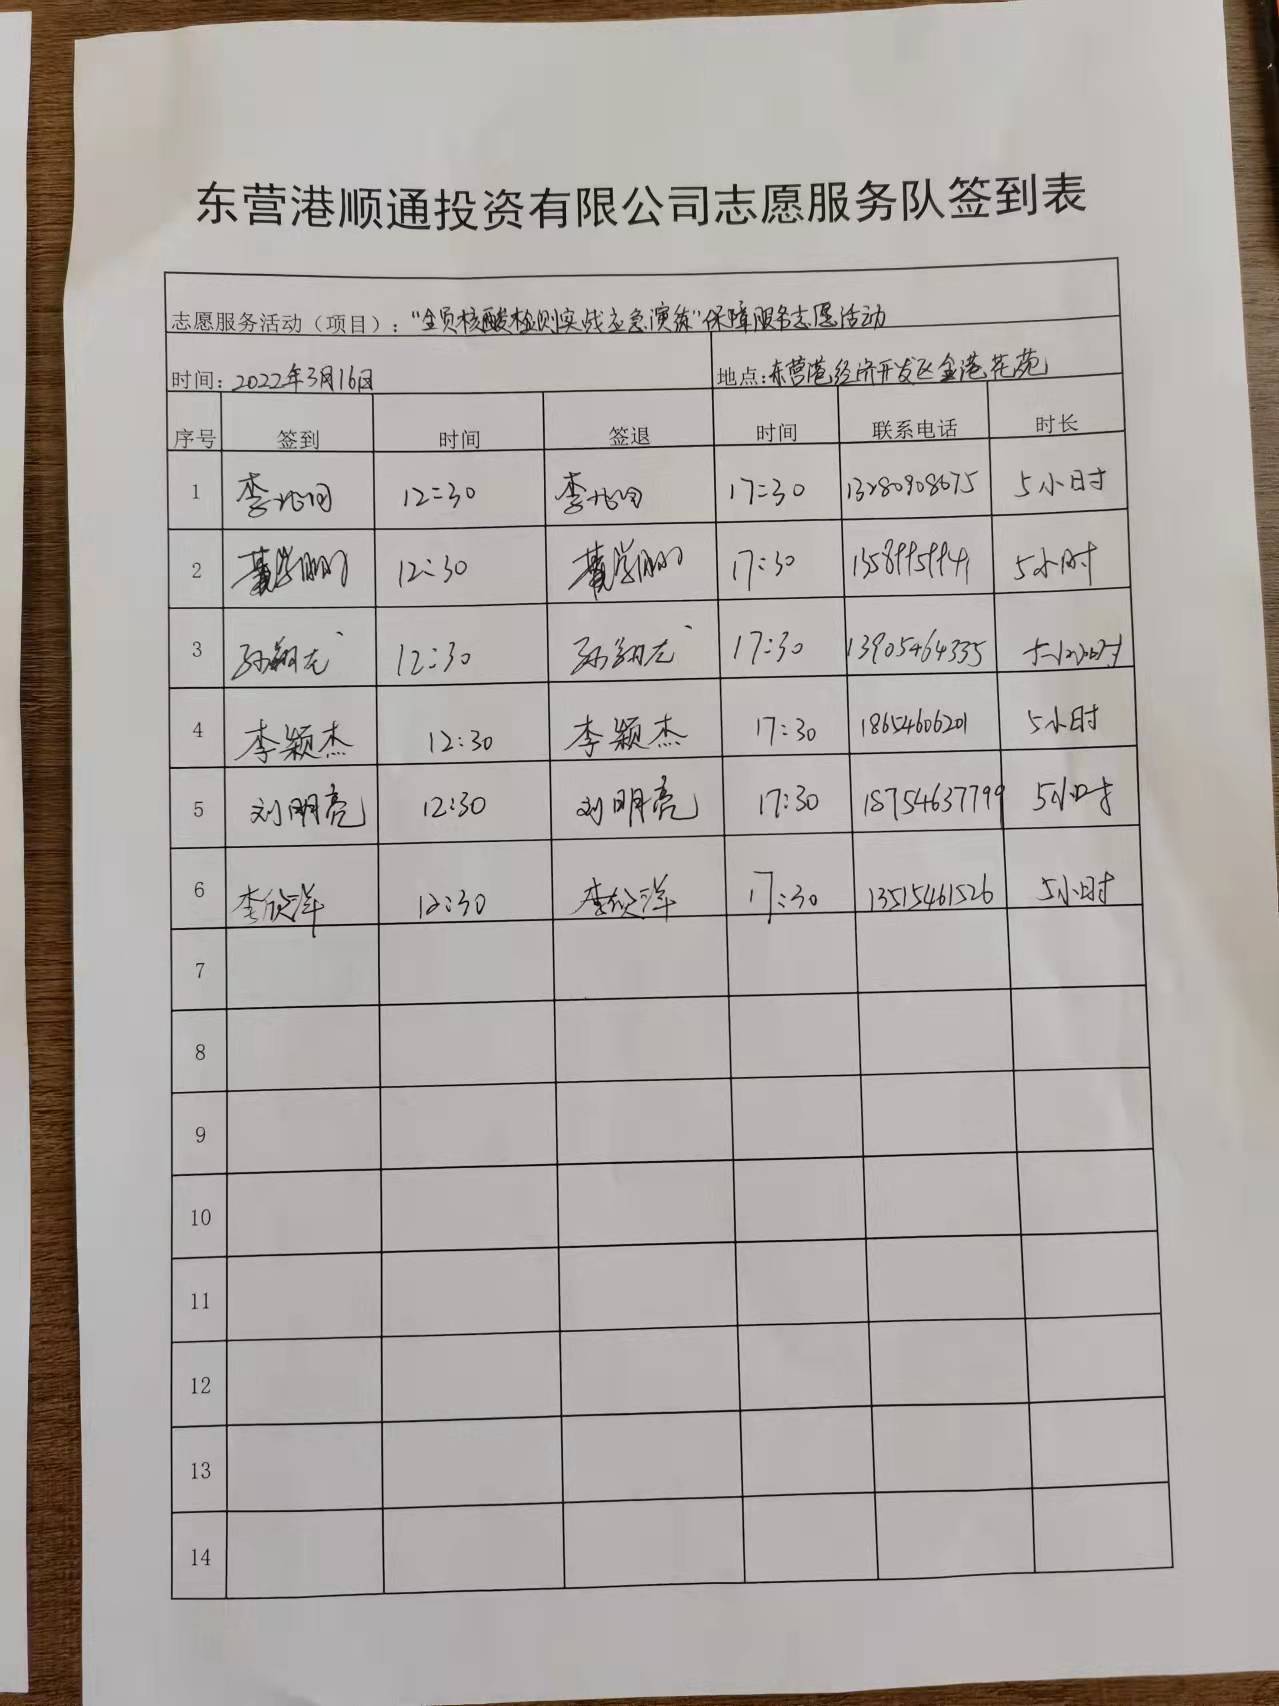 东营港顺通投资有限公司志愿服务队签到表
志愿服务活动（项目）："全员核酸检测实战应急演练"保障服务志愿活动
时间：2022年3月16日 地点：东营港经济开发区金港花苑
序号 签到 时间 签退 时间 联系电话 时长
1 12:30 17:30 13280908675 5小时
2 12:30 17:30 5小时
3 孙翔龙 12:30 孙翔龙 17:30 13905464335 5小时
4 李颖杰 12:30 李颖杰 17:30 18654606201 5小时
5 刘明亮 12:30 刘明亮 17:30 18754637799 5小时
6 李欣洋 12:30 李欣洋 17:30 13515461526 5小时
7
8
9
10
11
12
13
14